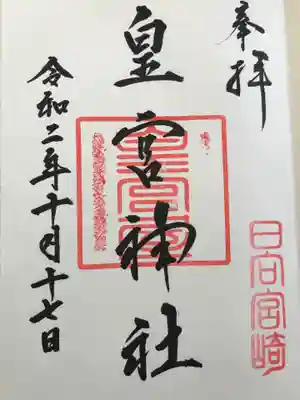 奉拝
日向宮崎
皇宮神社
令和二年十月十七日